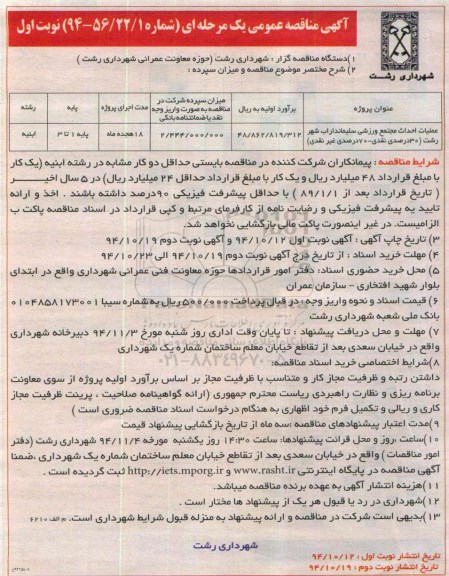 آگهی مناقصه عمومی یک مرحله ای (شماره ۹۴-۵۶/۲۲/۱) نوبت اول
شهرداری رشت
۱)دستگاه مناقصه گزار : شهرداری رشت (حوزه معاونت عمرانی شهرداری رشت )
۲) شرح مختصر موضوع مناقصه و میزان سپرده :
عنوان پروژه
برآورد اولیه به ریال
میزان سپرده شرکت در مناقصه به صورت واریز وجه نقد یا ضمانتنامه بانکی
مدت اجرای پروژه
پایه
رشته
عملیات احداث مجتمع ورزشی سلیمانداراب شهر رشت (۳۰درصدی نقدی-۷۰درصدی غیر نقدی)
۴۸/۸۶۲/۸۱۹/۳۱۲
۲/۴۴۴/۰۰۰/۰۰۰
۱۸هجده ماه
پایه ۱ تا ۳
ابنیه
شرایط مناقصه : پیمانکاران شرکت کننده در مناقصه بایستی حداقل دو کار مشابه در رشته ابنیه (یک کار
با مبلغ قرارداد ۴۸ میلیارد ریال و یک کار با مبلغ قرارداد حداقل ۲۴ میلیارد ریال) در ۵ سال اخیر
( تاریخ قرارداد بعد از ۸۹/۱/۱ ) با حداقل پیشرفت فیزیکی ۹۰درصد داشته باشند . اخذ و ارائه
تایید یه پیشرفت فیزیکی و رضایت نامه از کارفرمای مرتبط و کپی قرارداد در اسناد مناقصه پاکت ب
الزامیست. در غیر اینصورت پاکت مالی بازگشایی نخواهد شد.
۳) تاریخ چاپ آگهی : آگهی نوبت اول ۹۴/۱۰/۱۲ و آگهی نوبت دوم ۹۴/۱۰/۱۹
۴) مهلت خرید اسناد : از تاریخ درج آگهی نوبت دوم ۹۴/۱۰/۱۹ الی ۹۴/۱۰/۲۳
۵) محل خرید حضوری اسناد: دفتر امور قراردادها حوزه معاونت فنی عمرانی شهرداری واقع در ابتدای
بلوار شهید افتخاری - سازمان عمران
۶) قیمت اسناد و نحوه واریز وجه: در قبال پرداخت ۵۰۰/۰۰۰ ریال به شماره سیبا ۰۱۰۴۸۵۸۱۷۳۰۰۱
بانک ملی شعبه شهرداری رشت
۷) مهلت و محل دریافت پیشنهاد : تا پایان وقت اداری روز شنبه مورخ ۹۴/۱۱/۳ دبیرخانه شهرداری
واقع در خیابان سعدی بعد از تقاطع خیابان معلم ساختمان شماره یک شهرداری
۸)شرایط اختصاصی خرید اسناد مناقصه:
داشتن رتبه و ظرفیت مجاز کار و متناسب با ظرفیت مجاز بر اساس برآورد اولیه پروژه از سوی معاونت
برنامه ریزی و نظارت راهبردی ریاست محترم جمهوری (ارائه گواهینامه صلاحیت ، پرینت ظرفیت مجاز
کاری و ریالی و تکمیل فرم خود اظهاری به هنگام درخواست اسناد مناقصه ضروری است )
۹)مدت اعتبار پیشنهادهای مناقصه :سه ماه از تاریخ بازگشایی پیشنهاد قیمت
۱۰)ساعت روز و محل قرائت پیشنهادها: ساعت ۱۴:۳۰ روز یکشنبه مورخه ۹۴/۱۱/۴ شهرداری رشت (دفتر
امور مناقصات) واقع در خیابان سعدی بعد از تقاطع خیابان معلم ساختمان شماره یک شهرداری .ضمنا
آگهی مناقصه در پایگاه اینترنتی www.rasht.ir و http://iets.mporg.ir ثبت گردیده است .
۱۱)هزینه انتشار آگهی به عهده برنده مناقصه میباشد.
۱۲)شهرداری در رد یا قبول هر یک از پیشنهاد ها مختار است .
۱۳)بدیهی است شرکت در مناقصه و ارائه پیشنهاد به منزله قبول شرایط شهرداری است. م الف ۶۲۱۰
شهرداری رشت
تاریخ انتشار نوبت اول : ۹۴/۱۰/۱۲
تاریخ انتشار نوبت دوم : ۹۴/۱۰/۱۹